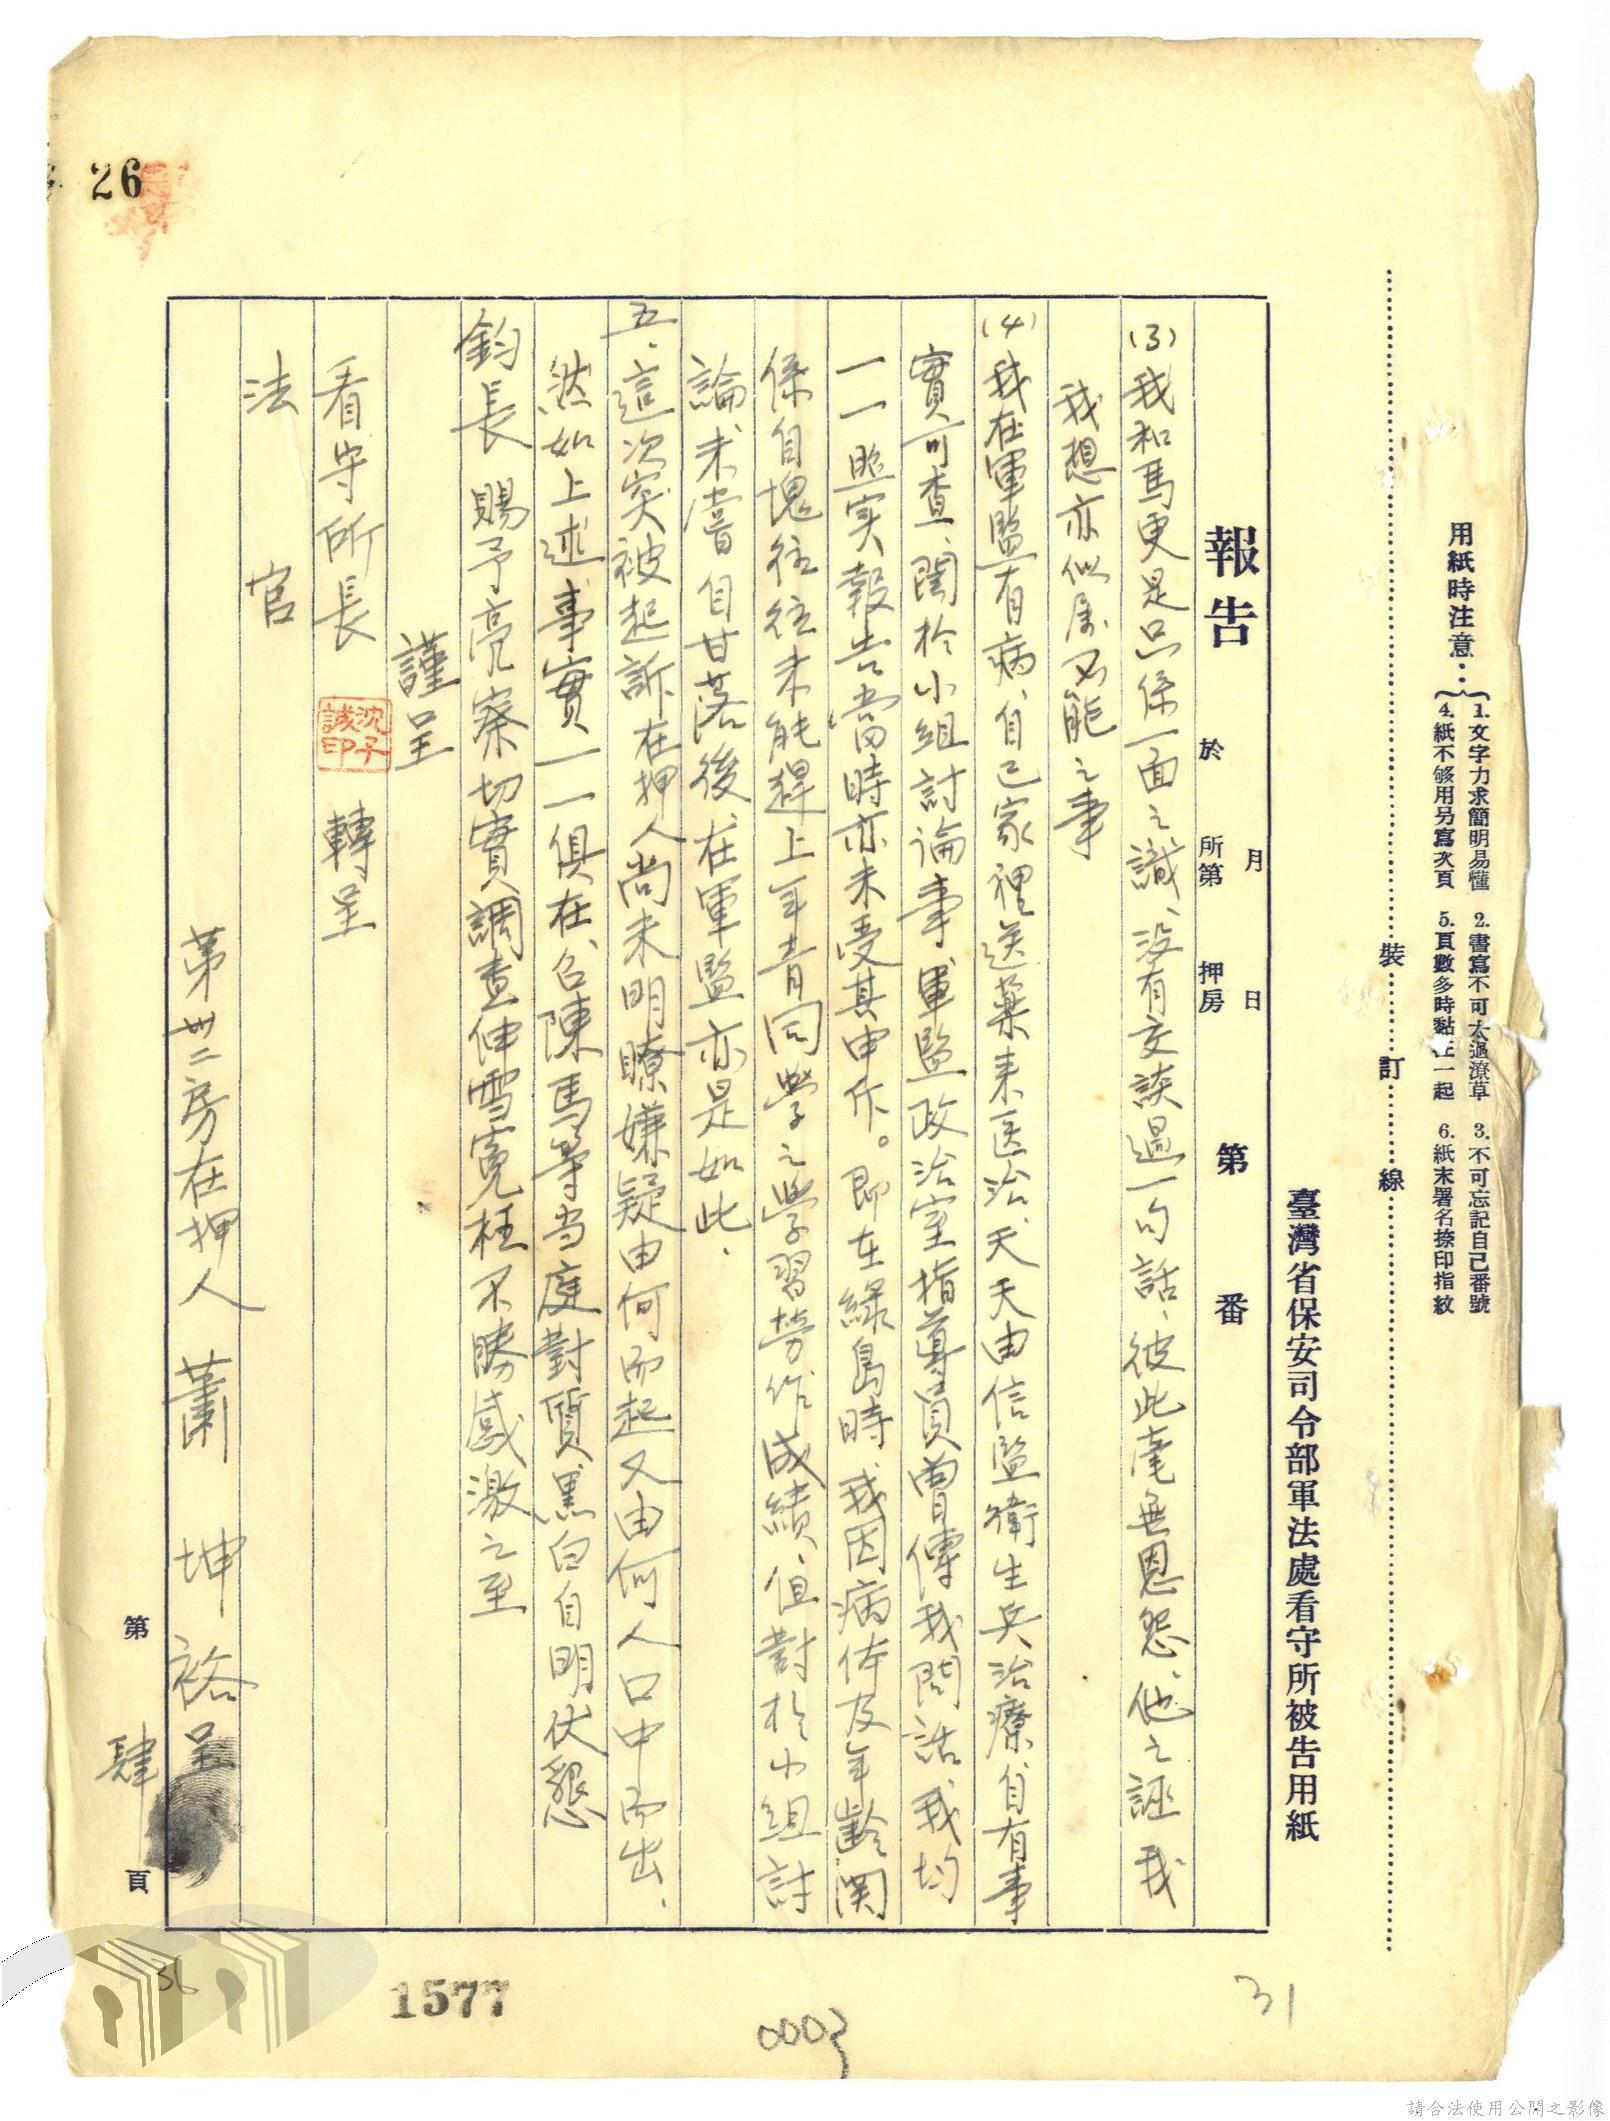 用紙時注意：
1.文字力求簡明易懂 2.書寫不可太過潦草 3.不可忘記自己番號
4.紙不够用另寫次頁 5.頁數多時黏在一起 6.紙末署名捺印指紋
裝 訂 線
臺灣省保安司令部軍法處看守所被告用紙
報告 於 月 日 所第 押房 第 番
(3)我和馬更是只係一面之識、没有交談過一句話、彼此毫無恩怨、他之誣我
我想亦似属不能之事
(4)我在軍監有病、自己家裡送藥来医治、天天由信監衛生兵治療、自有事
實可查、関於小組討論事、軍監政治室指導員曽傳我問話、我均
一一照实報告當時亦未受其申斥。即在綠島時、我因病体及年齡関
係自塊往往未能趕上年青同學之學習勞作成績、但對於小組討
論未嘗自甘落後、在軍監亦是如此、
五、這次突被起訴在押人尚未明瞭嫌疑由何而起又由何人口中而出、
然如上述事實一一俱在、召陳馬等当庭對質黒白自明伏懇
鈞長 賜予亮察切實調查伸雪寃枉不勝感激之至
謹呈
看守所長 轉呈
沈子誠印
法 官
第卅二房在押人 蕭坤裕呈
第 肆 頁
26
36
1577
0003
31
請合法使用公開之影像